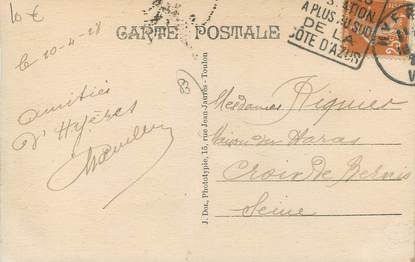 10 €
CARTE POSTALE
STATION
A PLUS AU SUD
DE LA
CÔTE D'AZUR
le 10-4-28
Amitiés
d'Hyères
J. Dor, Phototypie, 15, rue Jean-Jaurès - Toulon
83
Mesdames Riquier
Maison du Haras
Croix de Bernis
Seine